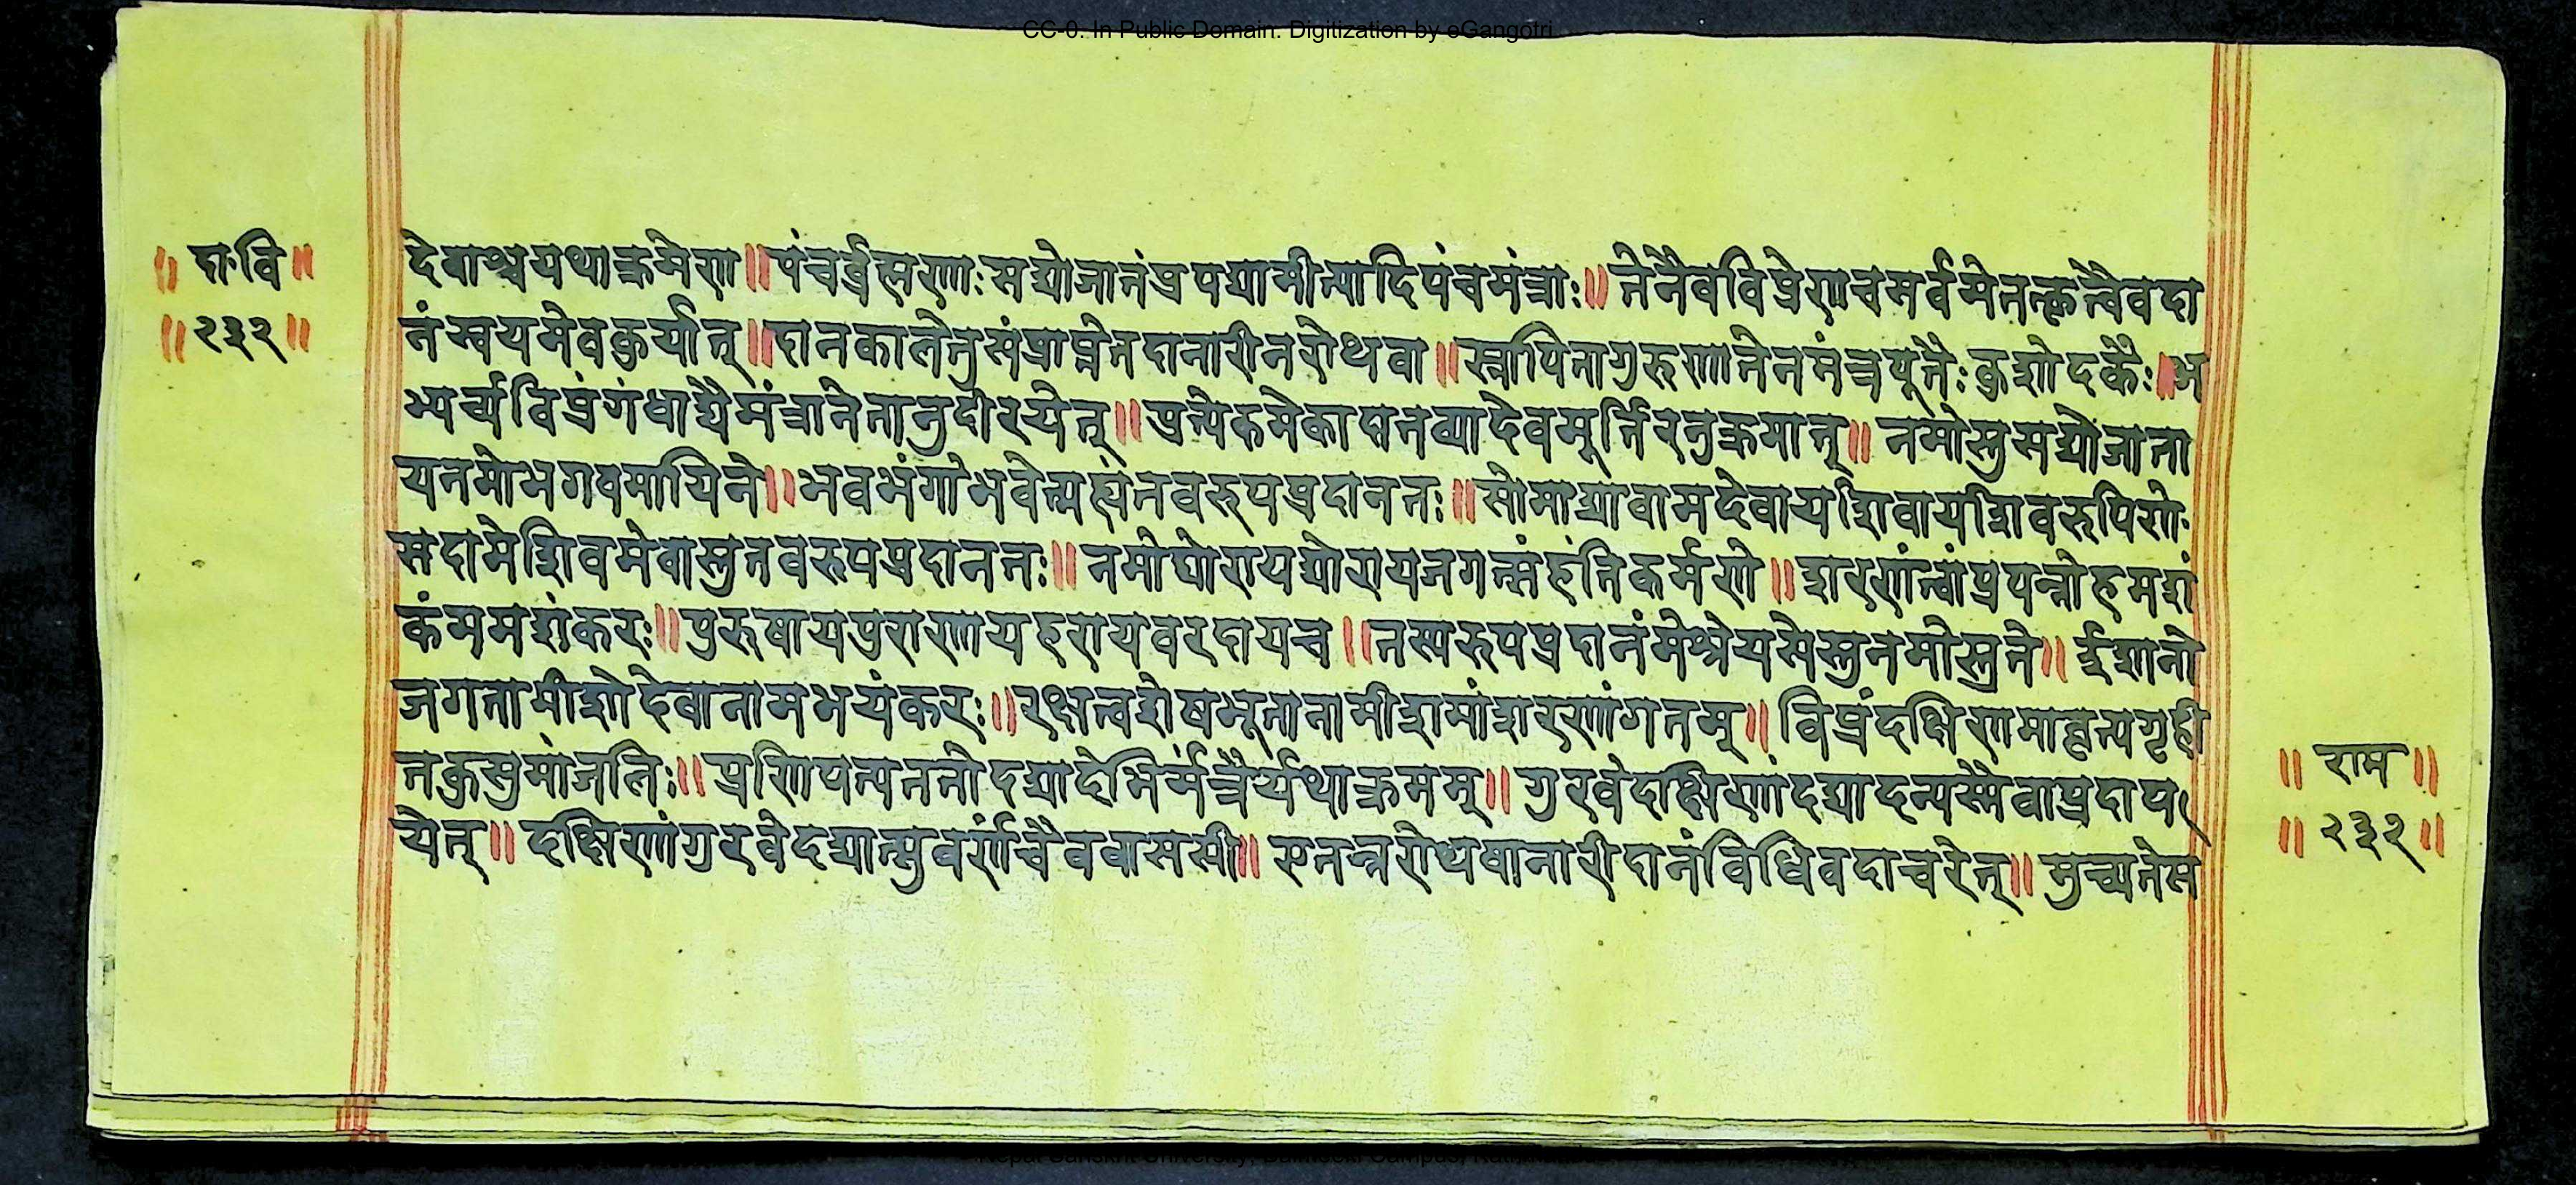 CC-0. In Public Domain. Digitization by eGangotri
॥ दा॰वि ॥
॥ २३२ ॥
देवाश्चयथाक्रमेण ॥ पंचर्ब्रह्मणः सद्योजातंप्रपद्यामीत्यादिपंचमंत्राः ॥ तेनैवविप्रेणचसर्वमेतत्कृत्वैवदा
नंस्वयमेवकुर्यात् ॥ दानकालेतुसंप्राप्तेतदानारीनरोथवा ॥ स्नापितागुरुणातेनमंत्रपूतैः कुशोदकैः ॥ अ
भ्यर्च्यविप्रंगंधाद्यैमंत्रानेतानुदीरयेत् ॥ प्रत्येकमेकादानव्यादेवमूर्तिरनुक्रमात् ॥ नमोस्तुसद्योजाता
यनमोभगवमायिने ॥ भवभंगोभवेन्मह्यंनवरुपप्रदानतः ॥ सोमाद्यावामदेवायशिवायशिवरुपिणे
सदामेशिवमेवास्तुतवरुपप्रदानतः ॥ नमोघोरायघोरायजगत्संहंतिकर्मणे ॥ शरणंत्वांप्रपन्नोहमशं
कंममशंकरः ॥ पुरुषायपुराणायहरायवरदायच ॥ तस्यरुपप्रदानंमेश्रेयसेस्तुनमोस्तुते ॥ ईशानो
जगतामीशोदेवानामभयंकरः ॥ रक्षत्वशेषभूतानामीशमांशरणंगतम् ॥ विप्रंदक्षिणमावृत्यगृही
तकुसुमांजलिः ॥ प्रणिपत्यततोदद्यादेभिर्मंत्रैर्यथाक्रमम् ॥ गुरवेदक्षिणांदद्यादन्यस्मैवाप्रदाप
येत् ॥ दक्षिणांगुरवेदद्यात्सुवर्णंचैववाससी ॥ एतन्नरोथवानारीदानंविधिवदाचरेत् ॥ मुच्यतेस
॥ राम ॥
॥ २३२ ॥